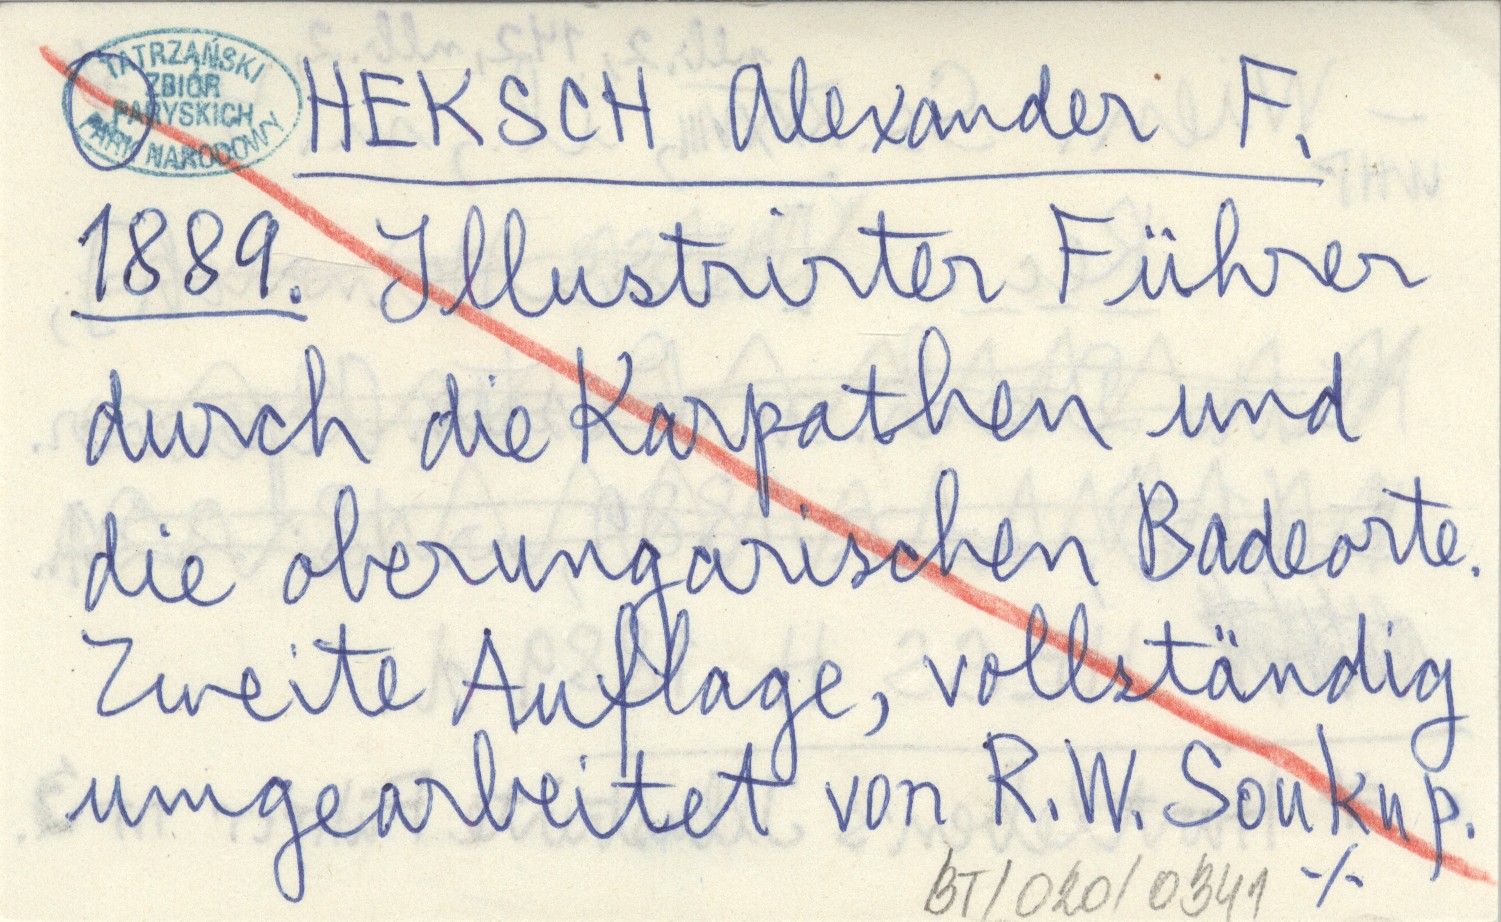 TATRZAŃSKI
ZBIÓR
PARYSKICH
PARK NARODOWY
HEKSCH Alexander F.
1889. Illustrirter Führer
durch die Karpathen und
die oberungarischen Badeorte.
Zweite Auflage, vollständig
umgearbeitet von R.W. Soukup.
BT/020/0341 ./.